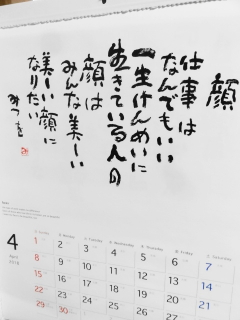 顔
仕事は
なんでもいい
一生けんめいに
生きている人の
顔は
みんな美しい
美しい顔に
なりたい
みつを
4
April
2018
Sunday Monday Tuesday Wednesday Thursday Friday Saturday
1 2 3 4 5 6 7
8 9 10 11 12 13 14
15 16 17 18 19 20 21
22 23 24 25 26 27 28
29 30